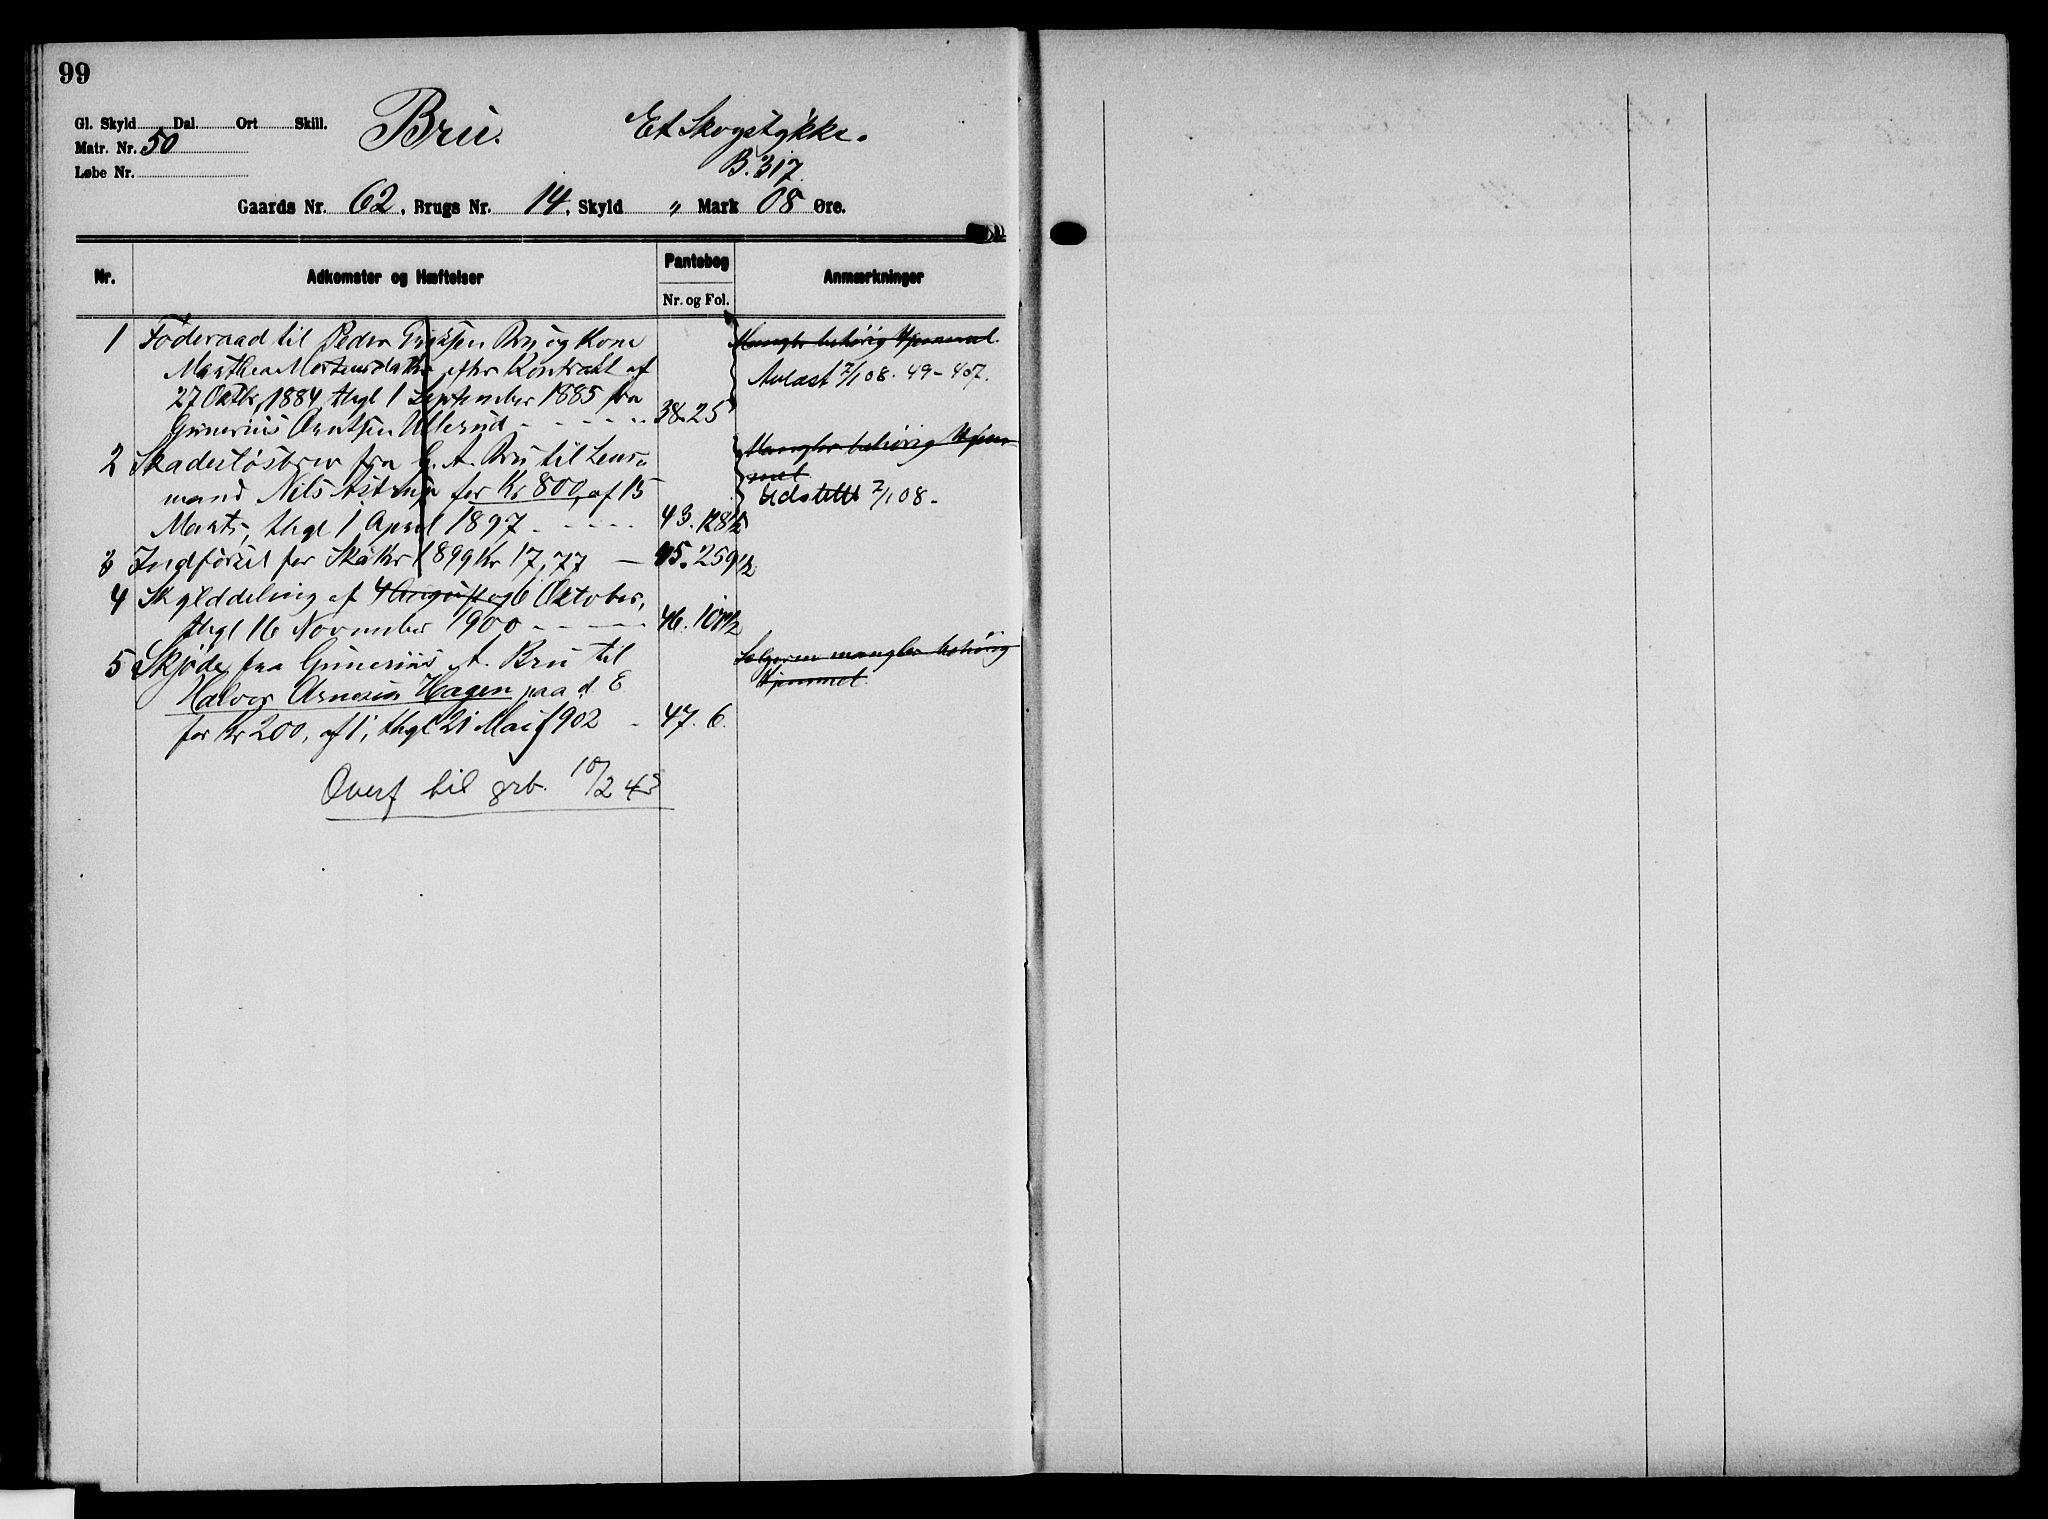 99
Gl. Skyld Dal. Ort Skill.
Bru.
Et Skogstykke.
Matr. Nr. 50
B. 317
Løbe Nr.
Gaards Nr. 62, Brugs Nr. 14, Skyld " Mark 08 Øre.
Nr.
Adkomster og Hæftelser
Pantebog
Nr. og Fol.
Anmærkninger
1 Føderaad til Peder Bru og Kone
Marthea Mortensdatter efter Kontrakt af
27 Oktbr. 1884 thgl 1 September 1885 fra
Gunerius Arntsen Ullerud - - - - - 38.25
Mangler behørig Hjemmel.
Avlæst 7/1 08. 49-407.
2 Skadesløsbrev fra G. A. Bru til Lens-
mand Nils Astrup for Kr 800, af 15
Marts, thgl 1 April 1897 - - - - - 43.128½
Mangler behørig Hjem-
mel
Udslettet 7/1 08-
3 Indførsel for Skat 1899 Kr 17,77 — 45.259½
4 Skylddeling af 4 August og 6 Oktober,
thgl 16 November 1900 - - - - 46.
5 Skjøde fra Gunerius A. Bru til
Halvor Arnesen Hagen paa d E
for Kr 200, af 1, thgl 21 Mai 1902 - 47. 6.
Sælgeren mangler behørig
Hjemmel.
Overf til grb. 10/2 43